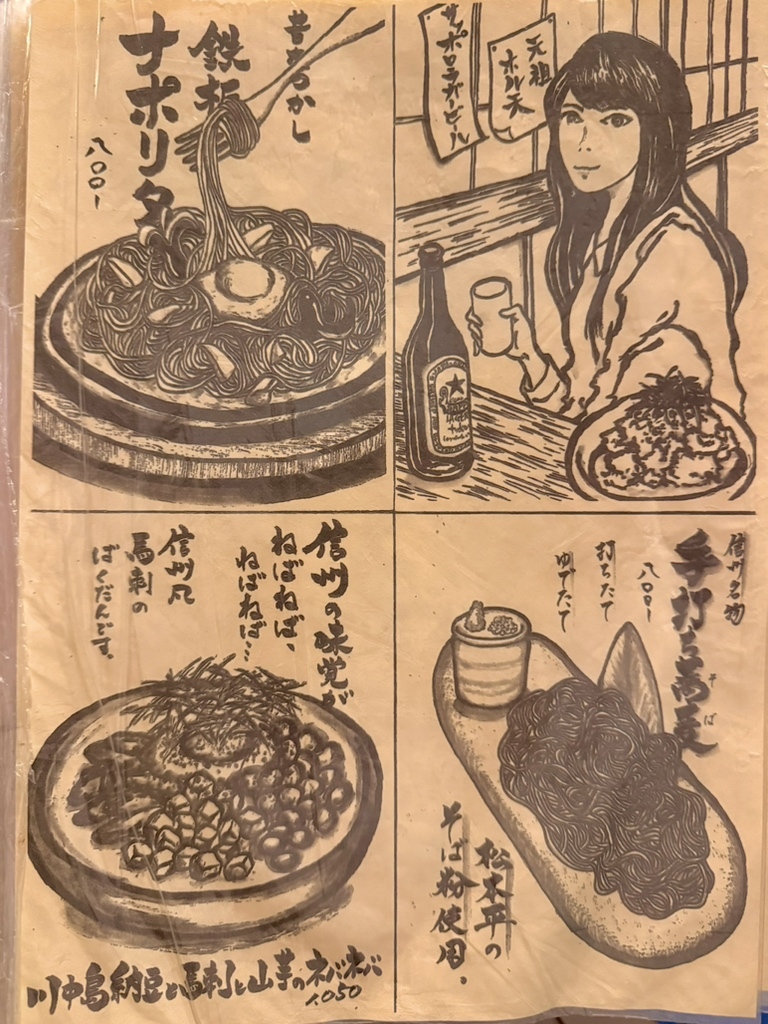 昔なつかし
鉄板
ナポリタ
八〇〇-
サッポロラガービール
元祖
ホル天
信州の味覚が
ねばねば、
ねばねば…
信州風
馬刺の
ばくだんです。
川中島納豆と馬刺と山芋のネバネバ
1,050
信州名物
手打ち蕎麦
そば
八〇〇-
打ちたて
ゆでたて
松本平の
そば粉使用。